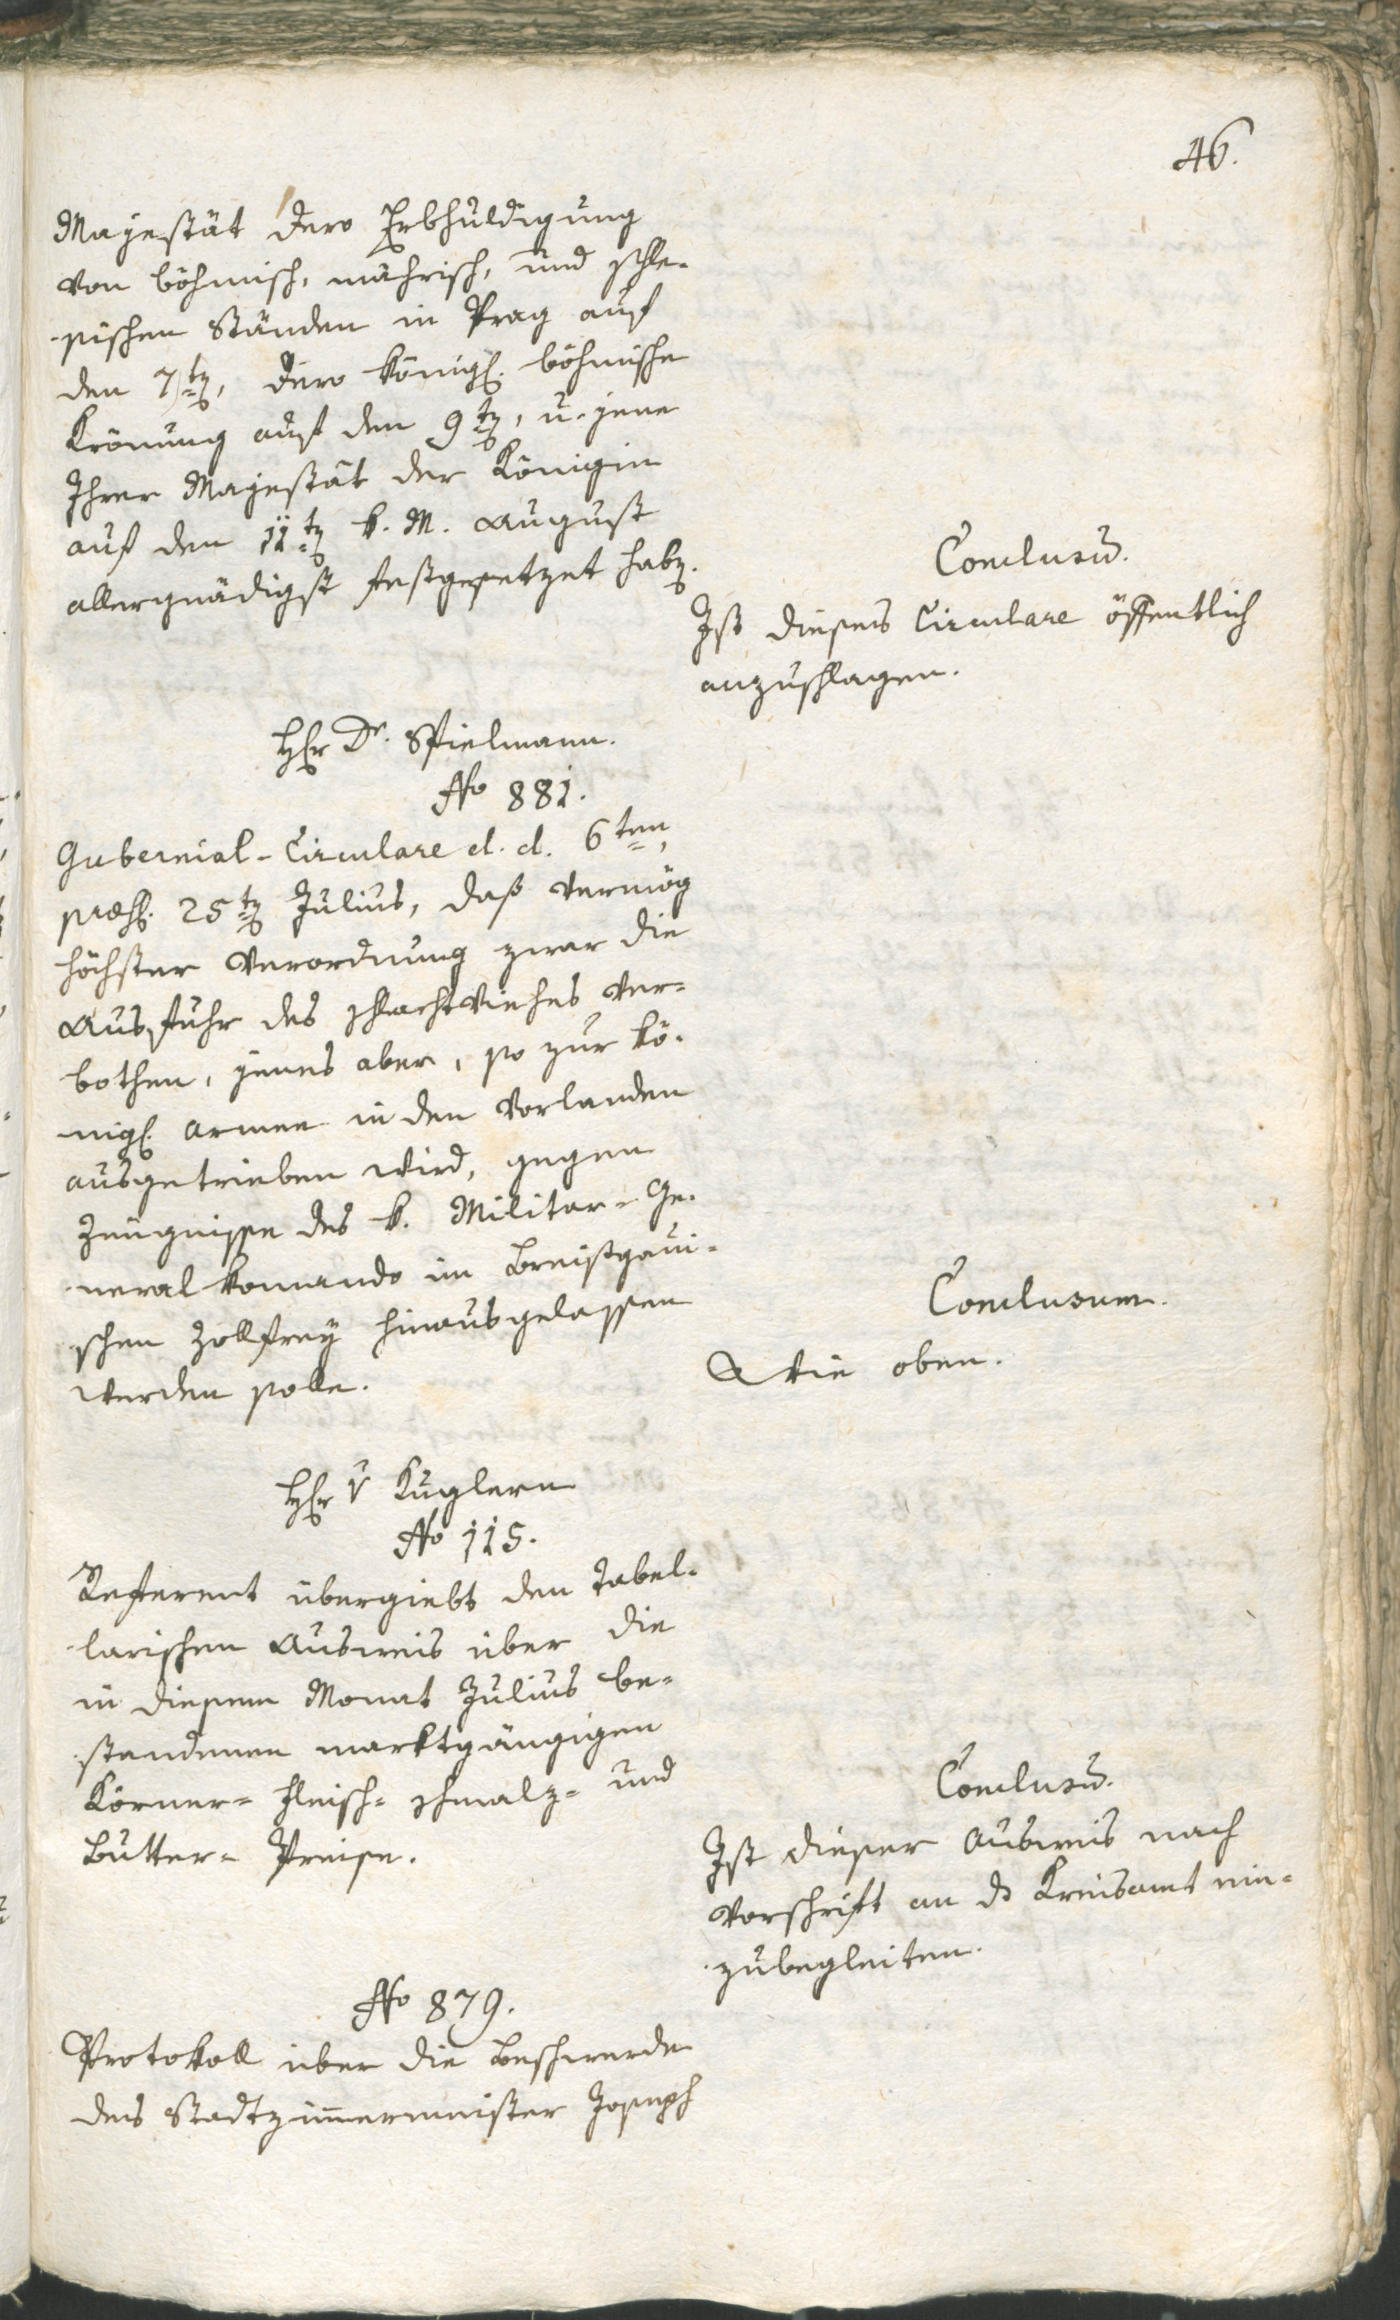 46.
Majestät dero Erbhuldigung
von böhmisch, mährisch, und schle-
sischen Ständen in Prag auf
den 7ten, dero königl. böhmische
Krönung auf den 9ten, u. jene
Ihrer Majestät der Königin
auf den 11ten k. M. August
allergnädigst festgesetzet haben.
Conclusum.
Ist dieses Circulare öffentlich
anzuschlagen.
Herr Dr. Spielmann.
No 881.
Gubernial-Circulare d. d. 6ten,
praes. 25ten Julius, daß vermög
höchster Verordnung zwar die
Ausfuhr des Schlachtviehes ver-
bothen, jenes aber, so zur kö-
nigl. Armee in den Vorlanden
ausgetrieben wird, gegen
Zeugnisse des k. Militar-Ge-
neral Komando im Breißgaui-
schen Zollfrey hinausgelassen
werden solle.
Conclusum.
Wie oben.
Herr v Kuglern
No 115.
Referent übergiebt den Tabel-
larischen Ausweis über die
in diesem Monat Julius be-
standenen marktgängigen
Körner- Fleisch- Schmalz- und
Butter- Preise.
Conclusum.
Ist dieser Ausweis nach
Vorschrift an das Kreisamt ein-
zubegleiten.
No 879.
Protokoll über die Beschwerde
des Stadtzimmermeister Joseph